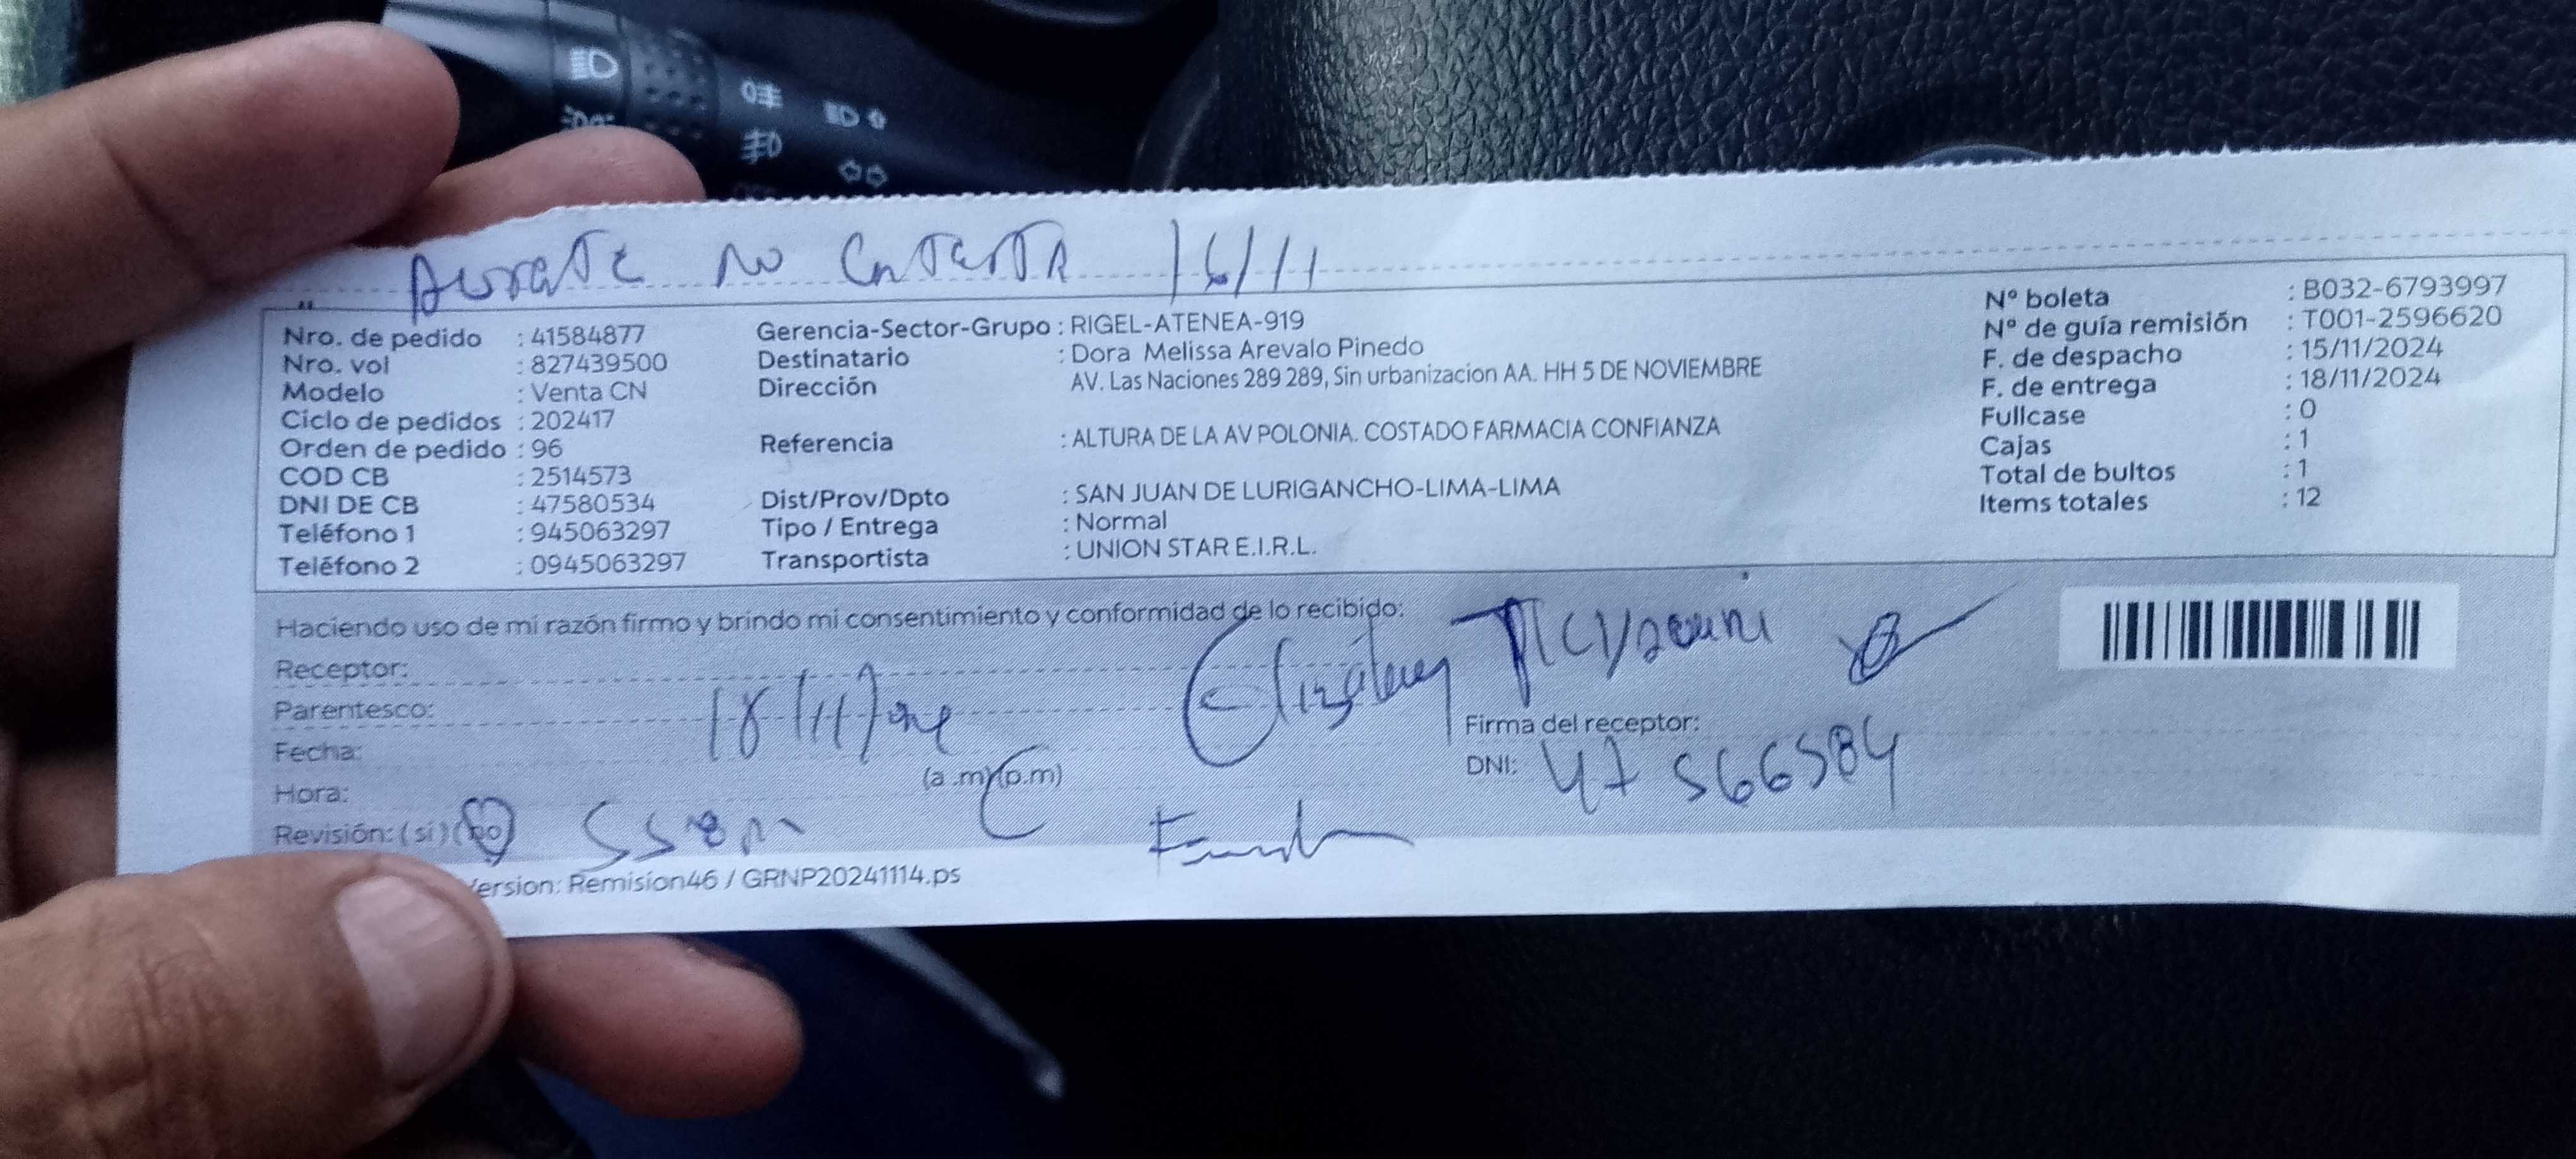 Ausente no contesta 16/11
Nro. de pedido : 41584877
Nro. vol : 827439500
Modelo : Venta CN
Ciclo de pedidos : 202417
Orden de pedido : 96
COD CB : 2514573
DNI DE CB : 47580534
Teléfono 1 : 945063297
Teléfono 2 : 0945063297
Gerencia-Sector-Grupo : RIGEL-ATENEA-919
Destinatario : Dora Melissa Arevalo Pinedo
Dirección AV. Las Naciones 289 289, Sin urbanizacion AA. HH 5 DE NOVIEMBRE
Referencia : ALTURA DE LA AV POLONIA. COSTADO FARMACIA CONFIANZA
Dist/Prov/Dpto : SAN JUAN DE LURIGANCHO-LIMA-LIMA
Tipo / Entrega : Normal
Transportista : UNION STAR E.I.R.L.
Nº boleta : B032-6793997
Nº de guía remisión : T001-2596620
F. de despacho : 15/11/2024
F. de entrega : 18/11/2024
Fullcase : 0
Cajas : 1
Total de bultos : 1
Items totales : 12
Haciendo uso de mi razón firmo y brindo mi consentimiento y conformidad de lo recibido:
Receptor:
Parentesco:
Fecha: 18/11/
Hora: (a.m)(p.m)
Revisión: (si) (no)
Firma del receptor:
DNI: 47566584
ersion: Remision46 / GRNP20241114.ps